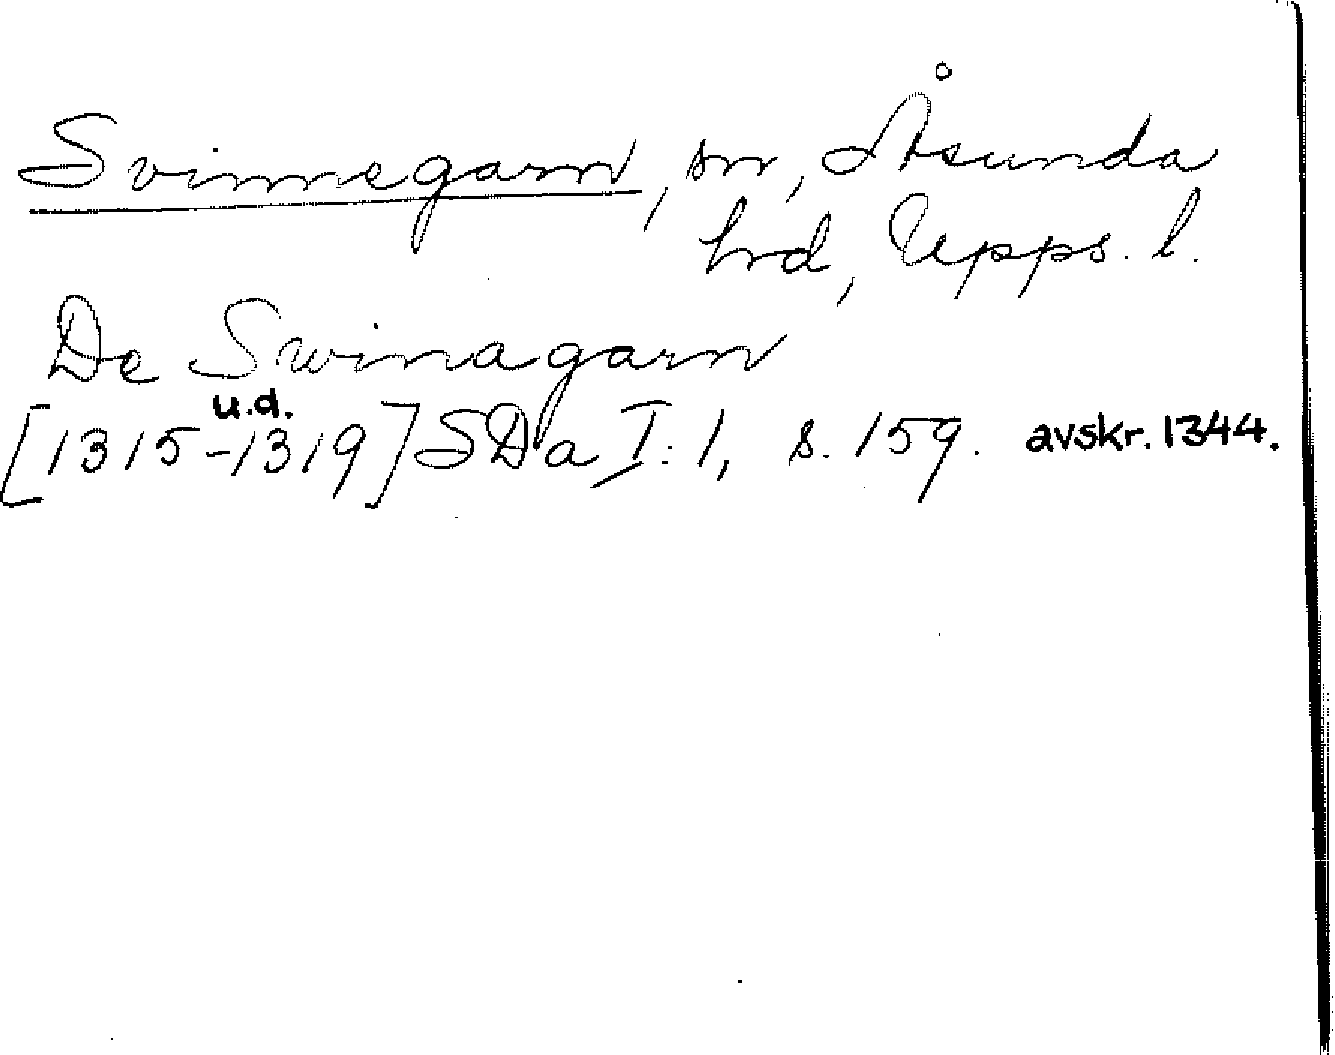 Svinnegarn, sn, Åsunda
hrd, Upps. l.
De Swinagarn
u.d.
[1315-1319] SDa I: 1, s. 159. avskr. 1344.